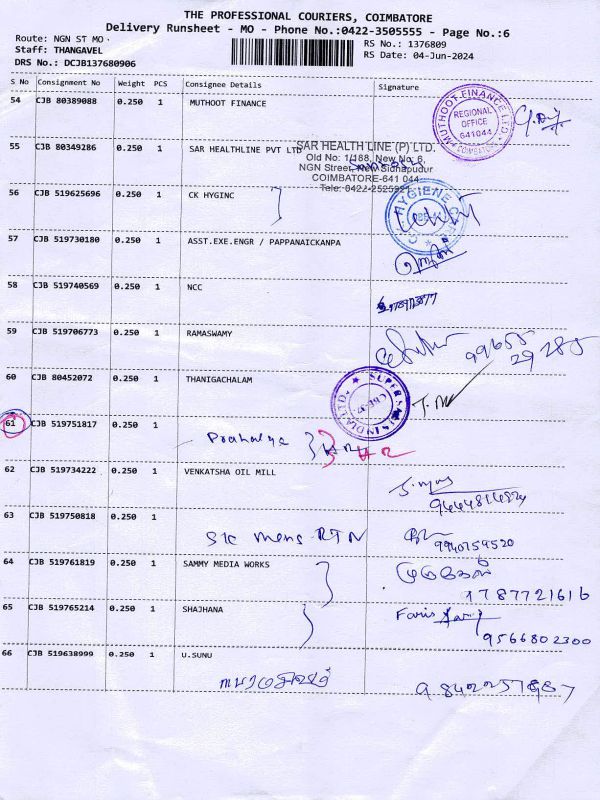 THE PROFESSIONAL COURIERS, COIMBATORE
Delivery Runsheet - MO - Phone No.:0422-3505555 - Page No.:6
Route: NGN ST MO
Staff: THANGAVEL
DRS No.: DCJB137680906
RS No.: 1376809
RS Date: 04-Jun-2024
S No Consignment No Weight PCS Consignee Details Signature
54 CJB 80389088 0.250 1 MUTHOOT FINANCE
MUTHOOT FINANCE LTD. REGIONAL OFFICE 641044 COIMBATORE
55 CJB 80349286 0.250 1 SAR HEALTHLINE PVT LTD
SAR HEALTH LINE (P) LTD.
Old No: 1/188, New No. 6,
NGN Street, New Sidhapudur
COIMBATORE-641 044
Tele: 0422-2525927
56 CJB 519625696 0.250 1 CK HYGINC
HYGIENE
57 CJB 519730180 0.250 1 ASST.EXE.ENGR / PAPPANAICKANPA
58 CJB 519740569 0.250 1 NCC
59 CJB 519706773 0.250 1 RAMASWAMY
99655
29285
60 CJB 80452072 0.250 1 THANIGACHALAM
61 CJB 519751817 0.250 1
Prahalya
62 CJB 519734222 0.250 1 VENKATSHA OIL MILL
9444814824
63 CJB 519750818 0.250 1
RTN
9940759520
64 CJB 519761819 0.250 1 SAMMY MEDIA WORKS
முருகேஸ்
1787721616
65 CJB 519765214 0.250 1 SHAJHANA
Faris
9566802300
66 CJB 519638999 0.250 1 U.SUNU